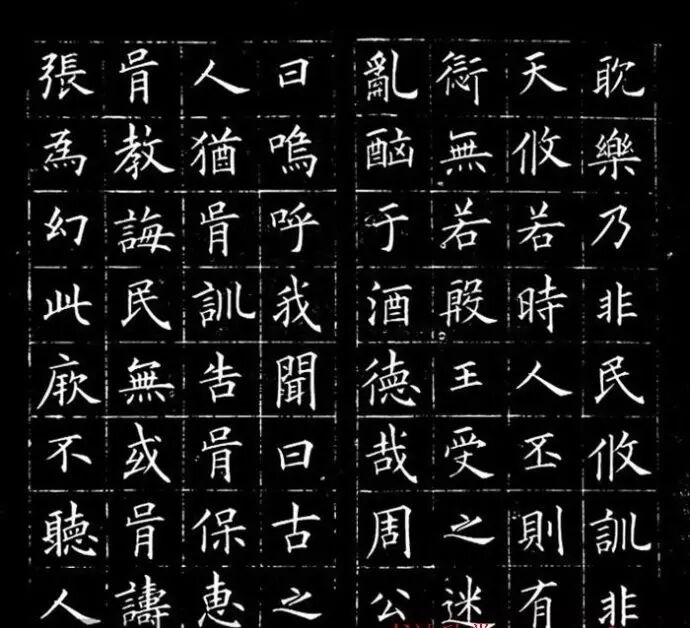 耽樂乃非民攸訓非
天攸若時人丕則有
愆無若殷王受之迷
亂酗于酒德哉周公
曰嗚呼我聞曰古之
人猶胥訓告胥保惠
胥教誨民無或胥譸
張為幻此厥不聽人